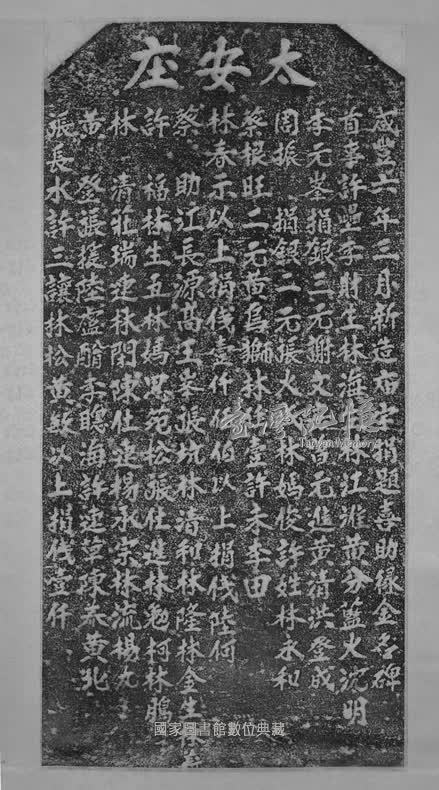 太安庄
咸豐六年三月新造宿 題喜助緣金名碑
首事許壘李財生林海 林江淮黃分藍火沈明
李元峯捐銀三元謝文 元進黃清洪登成
周振 捐銀二元張火 林媽俊許姓林永和
蔡根旺二元黃烏獅林 壹許未李田
林春示以上捐伐壹仟 佰以上捐伐陸伺
蔡 助江長源高工峯張坑林清和林隆林金生林
許 福林生五林媽思范松張仕進林勉柯林
林 清莊瑞建林閉陳仕建楊永宗林流楊九
黃 登張援陸盧 李聰 許建草陳恭黃
張長水許三讓林松黃 以上捐伐壹仟
臺灣記憶
Taiwan Memory
國家圖書館數位典藏